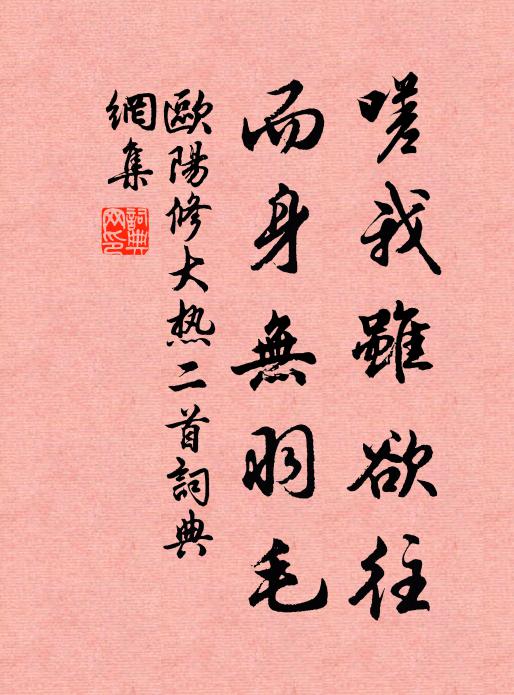 嗟我雖欲往
而身無羽毛
歐陽修大热二首詞典
網集
詞典網印